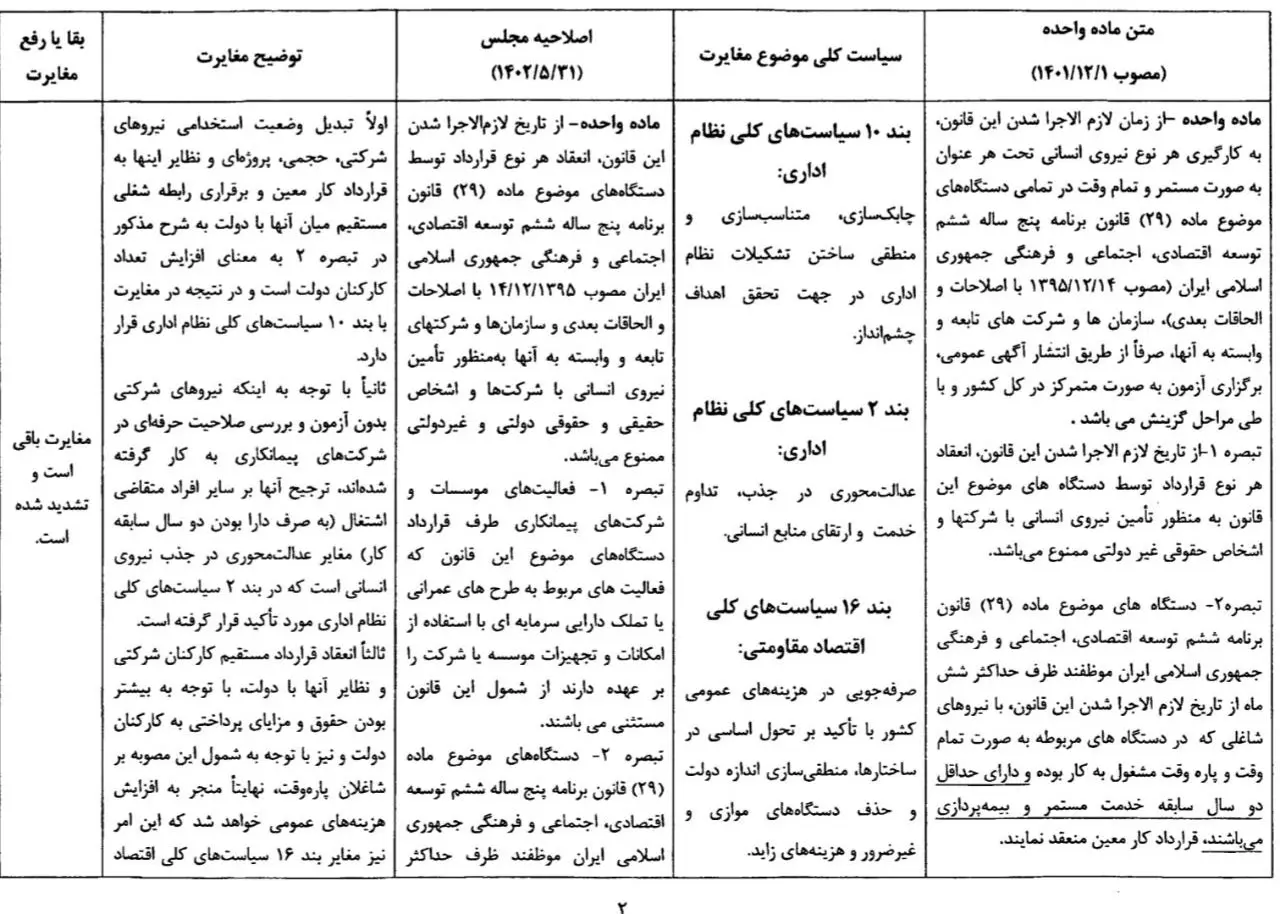 متن ماده واحده
(مصوب ۱۴۰۱/۱۲/۱)
سیاست کلی موضوع مغایرت
اصلاحیه مجلس
(۱۴۰۲/۵/۳۱)
توضیح مغایرت
بقا یا رفع
مغایرت
ماده واحده –از زمان لازم الاجرا شدن این قانون،
به کارگیری هر نوع نیروی انسانی تحت هر عنوان
به صورت مستمر و تمام وقت در تمامی دستگاه‌های
موضوع ماده (۲۹) قانون برنامه پنج ساله ششم
توسعه اقتصادی، اجتماعی و فرهنگی جمهوری
اسلامی ایران (مصوب ۱۳۹۵/۱۲/۱۴ با اصلاحات و
الحاقات بعدی)، سازمان ها و شرکت های تابعه و
وابسته به آنها، صرفاً از طریق انتشار آگهی عمومی،
برگزاری آزمون به صورت متمرکز در کل کشور و با
طی مراحل گزینش می باشد .
تبصره ۱-از تاریخ لازم الاجرا شدن این قانون، انعقاد
هر نوع قرارداد توسط دستگاه های موضوع این
قانون به منظور تأمین نیروی انسانی با شرکتها و
اشخاص حقوقی غیر دولتی ممنوع می‌باشد.
تبصره۲- دستگاه های موضوع ماده (۲۹) قانون
برنامه ششم توسعه اقتصادی، اجتماعی و فرهنگی
جمهوری اسلامی ایران موظفند ظرف حداکثر شش
ماه از تاریخ لازم الاجرا شدن این قانون، با نیروهای
شاغلی که در دستگاه های مربوطه به صورت تمام
وقت و پاره وقت مشغول به کار بوده و دارای حداقل
دو سال سابقه خدمت مستمر و بیمه‌پردازی
می‌باشند، قرارداد کار معین منعقد نمایند.
بند ۱۰ سیاست‌های کلی نظام
اداری:
چابک‌سازی، متناسب‌سازی و
منطقی ساختن تشکیلات نظام
اداری در جهت تحقق اهداف
چشم‌انداز.
بند ۲ سیاست‌های کلی نظام
اداری:
عدالت‌محوری در جذب، تداوم
خدمت و ارتقای منابع انسانی.
بند ۱۶ سیاست‌های کلی
اقتصاد مقاومتی:
صرفه‌جویی در هزینه‌های عمومی
کشور با تأکید بر تحول اساسی در
ساختارها، منطقی‌سازی اندازه دولت
و حذف دستگاه‌های موازی و
غیرضرور و هزینه‌های زاید.
ماده واحده– از تاریخ لازم‌الاجرا شدن
این قانون، انعقاد هر نوع قرارداد توسط
دستگاه‌های موضوع ماده (۲۹) قانون
برنامه پنج ساله ششم توسعه اقتصادی،
اجتماعی و فرهنگی جمهوری اسلامی
ایران مصوب ۱۴/۱۲/۱۳۹۵ با اصلاحات
و الحاقات بعدی و سازمان‌ها و شرکتهای
تابعه و وابسته به آنها به‌منظور تأمین
نیروی انسانی با شرکت‌ها و اشخاص
حقیقی و حقوقی دولتی و غیردولتی
ممنوع می‌باشد.
تبصره ۱- فعالیت‌های موسسات و
شرکت‌های پیمانکاری طرف قرارداد
دستگاه‌های موضوع این قانون که
فعالیت های مربوط به طرح های عمرانی
یا تملک دارایی سرمایه ای با استفاده از
امکانات و تجهیزات موسسه یا شرکت را
بر عهده دارند از شمول این قانون
مستثنی می باشند.
تبصره ۲- دستگاه‌های موضوع ماده
(۲۹) قانون برنامه پنج ساله ششم توسعه
اقتصادی، اجتماعی و فرهنگی جمهوری
اسلامی ایران موظفند ظرف حداکثر
اولاً تبدیل وضعیت استخدامی نیروهای
شرکتی، حجمی، پروژه‌ای و نظایر اینها به
قرارداد کار معین و برقراری رابطه شغلی
مستقیم میان آنها با دولت به شرح مذکور
در تبصره ۲ به معنای افزایش تعداد
کارکنان دولت است و در نتیجه در مغایرت
با بند ۱۰ سیاست‌های کلی نظام اداری قرار
دارد.
ثانیاً با توجه به اینکه نیروهای شرکتی
بدون آزمون و بررسی صلاحیت حرفه‌ای در
شرکت‌های پیمانکاری به کار گرفته
شده‌اند، ترجیح آنها بر سایر افراد متقاضی
اشتغال (به صرف دارا بودن دو سال سابقه
کار) مغایر عدالت‌محوری در جذب نیروی
انسانی است که در بند ۲ سیاست‌های کلی
نظام اداری مورد تأکید قرار گرفته است.
ثالثاً انعقاد قرارداد مستقیم کارکنان شرکتی
و نظایر آنها با دولت، با توجه به بیشتر
بودن حقوق و مزایای پرداختی به کارکنان
دولت و نیز با توجه به شمول این مصوبه بر
شاغلان پاره‌وقت، نهایتاً منجر به افزایش
هزینه‌های عمومی خواهد شد که این امر
نیز مغایر بند ۱۶ سیاست‌های کلی اقتصاد
مغایرت باقی
است و
تشدید شده
است.
۲